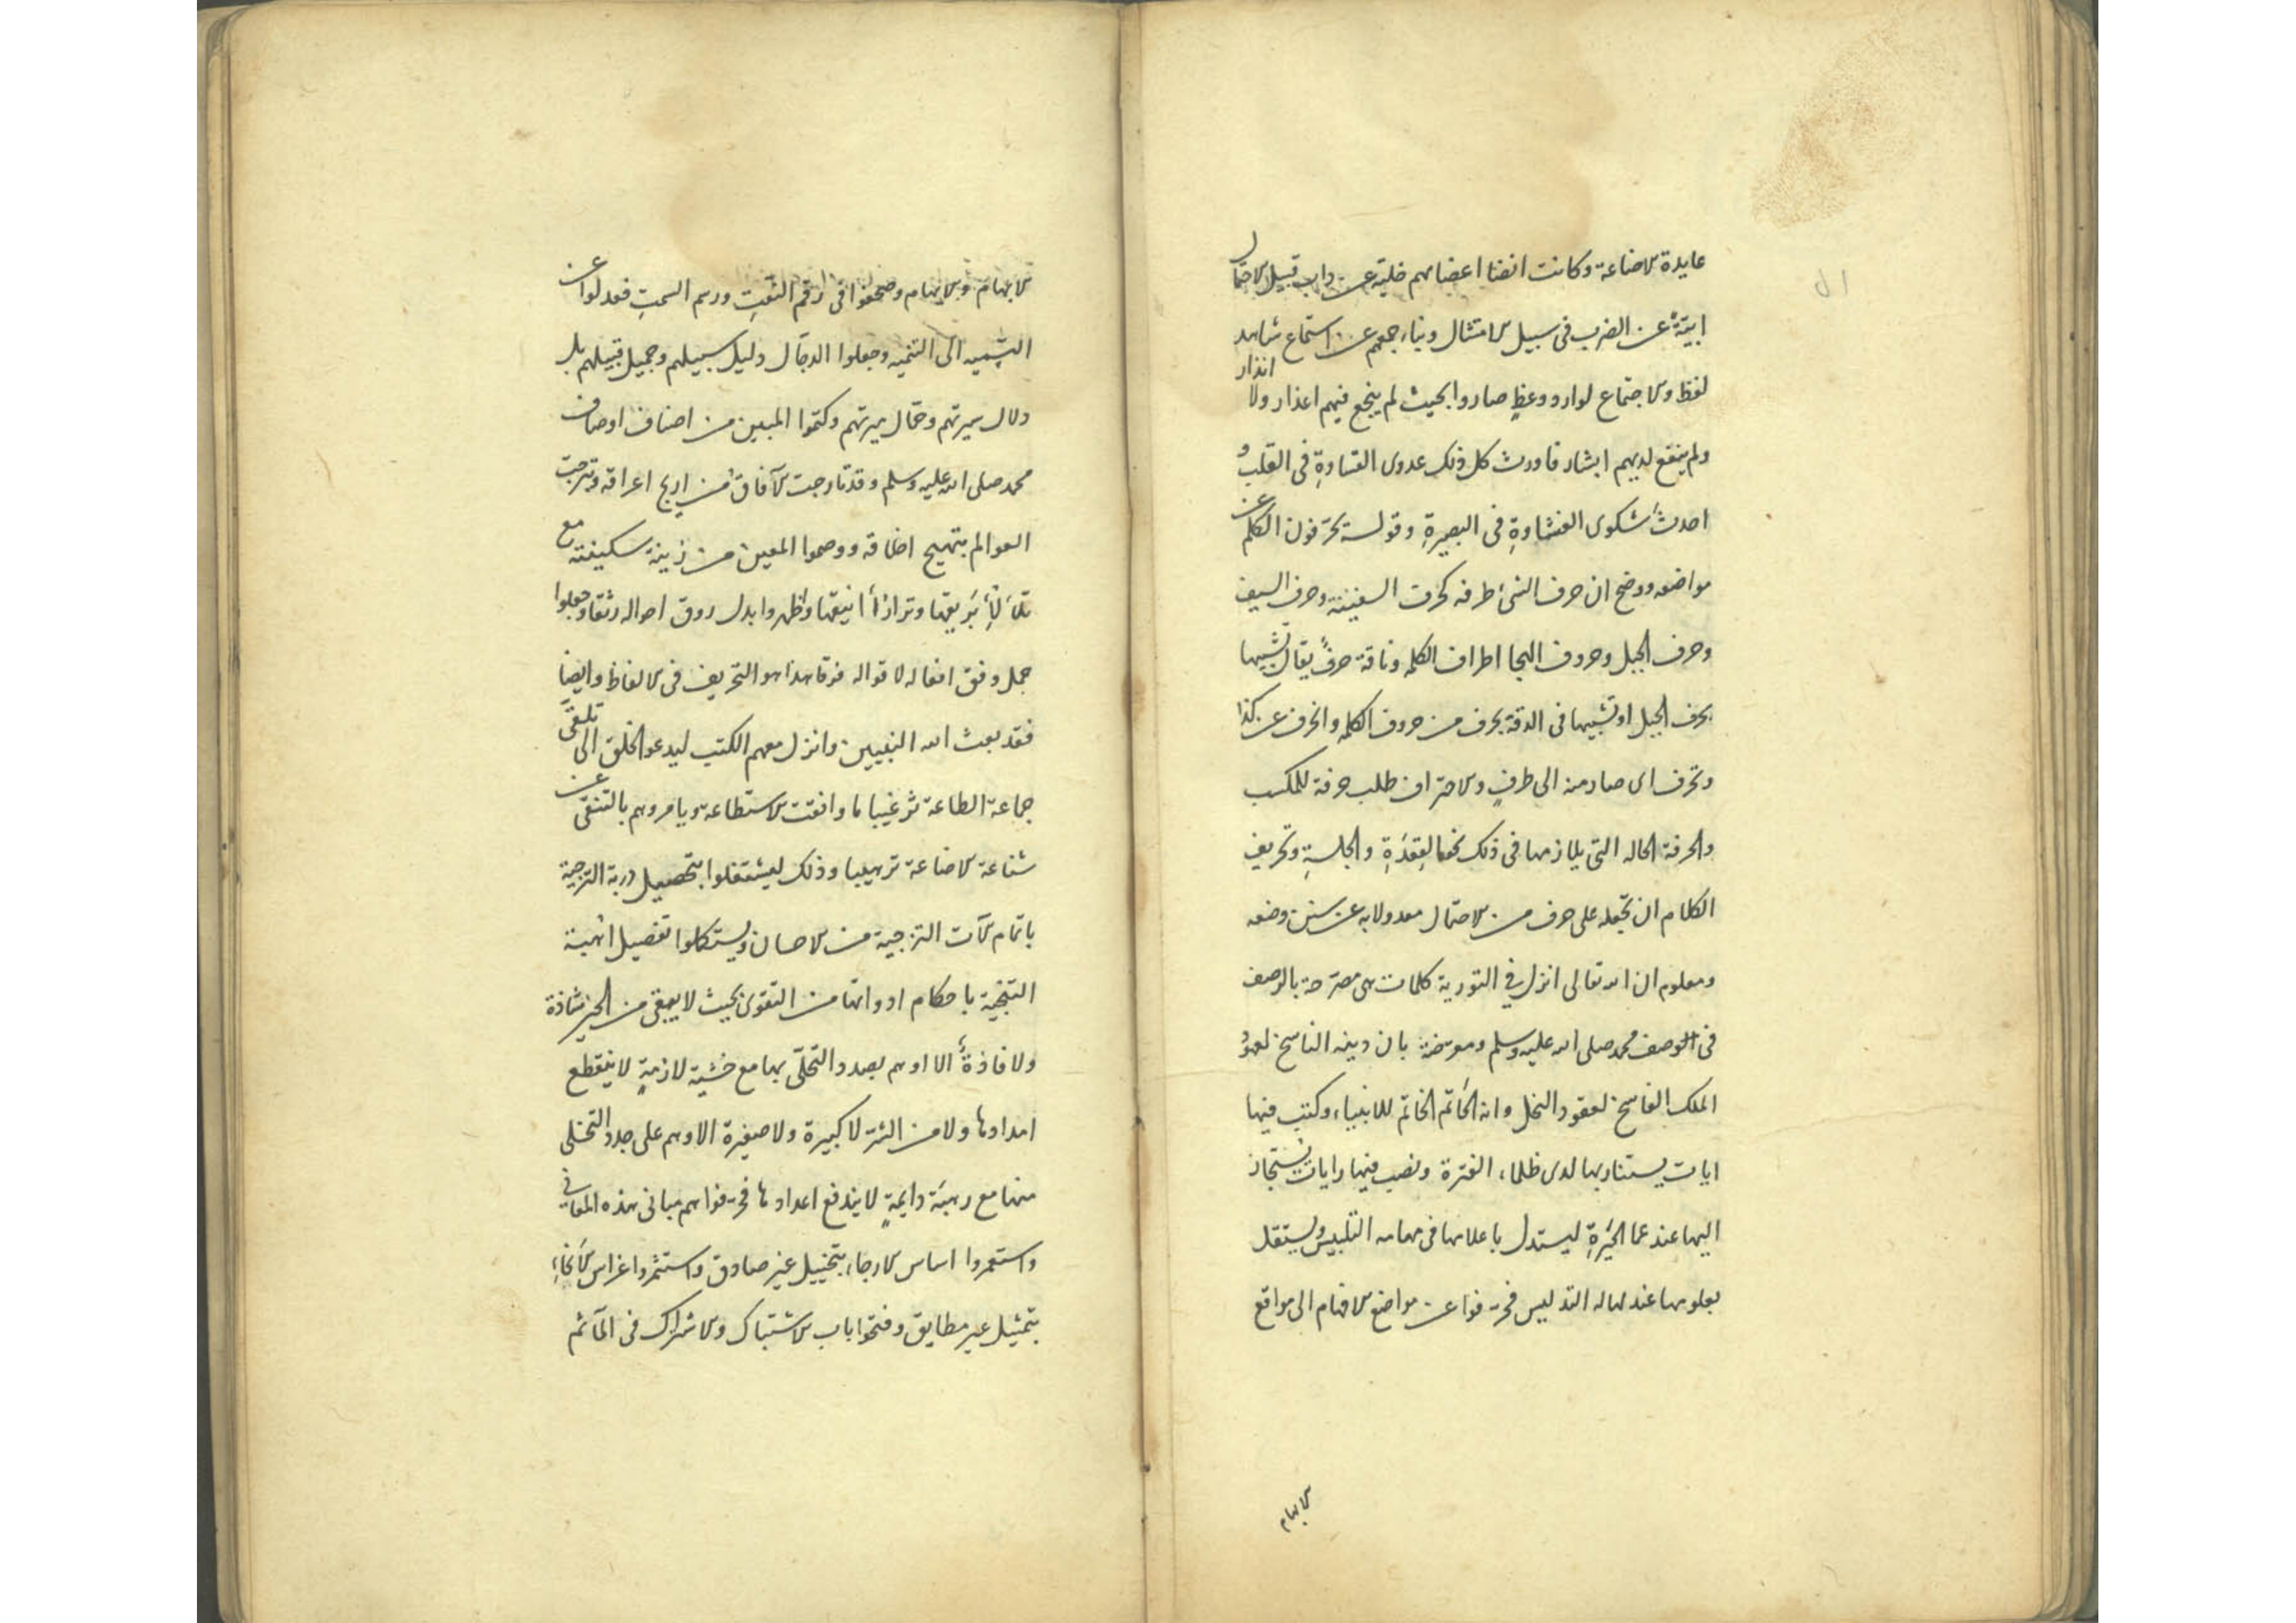 عايدة الاضاعة وكانت انضا اعضائهم خلية عن داب قبيل الاحتمال
ابيّة عن الضرب فى سبيل الامتثال وبناء جمعهم عن استماع شاهد
لفظ والاجتماع لوارد ووعظٍ صاروا بحيث لم ينجع فيهم اعذار ولا انذار
ولم ينفع لديهم ابشار فاورث كل ذلك عدوى القساوةِ فى القلب و
احدث شكوى الغشاوةِ فى البصيرةِ وقوله يحرّفون الكلم عن
مواضعه ووضح ان حرف الشئ طرفه كحرف السفينة وحرف السيف
وحرف الجبل وحروف الهجا اطراف الكلمه وناقة حرفٌ يقال تشبيها
بحرف الجبل او تشبيها فى الدقة بحرف من حروف الكلمه وانحرف عن كذا
وتحرف اى صار منه الى طرفٍ والاحتراف طلب حرفة للمكسب
والحرفة الحاله التى يلازمها فى ذلك نحو القِعْدَةِ والجلسةِ وتحريف
الكلام ان تجعله على حرف من الاحتمال معدولا به عن سنن وضعه
ومعلوم ان الله تعالى انزل فى التورية كلمات هى مصرّحة بالوصف
فى الوصف محمد صلى الله عليه وسلم ومعرّضة بان دينه الناسخ لعهود
الملك الفاسخ لعقود النحل وانه الخَاتَم الخاتِم للانبياء وكتب فيها
ايات يستنار بها لدى ظلماء الفترة ونصب فيها رايات يُستجاز
اليها عند عما الحَيْرَةِ ليستدل باعلامها فى مهامه التلبيس ويستقل
بعلومها عند لهاله التدليس فحرّفوا عن مواضع الافهام الى مواقع
الابهام
الابهام والايهام وصحّفوا فى رقم النعتِ ورسم السمتِ فعدلوا عن
التسميه الى التنميه وجعلوا الدجّال دليل سبيلهم وجميل قبيلهم بل
دلال سيرتهم وحمّال ميرتهم وكتموا المبين من اصناف اوصاف
محمد صلى الله عليه وسلم وقد تارجت الآفاق من اريج اعراقه وتبرجت
العوالم بتهيج اخلاقه ووصموا المعين من زينة سكينته مع
تلألأ بَريقها وترازأ انيقها واظهروا بدل روق احواله رثقا وجعلوا
جمل وفق افعاله لاقواله فرقا هذا هو التحريف فى الالفاظ وايضا
فقد بعث الله النبيين وانزل معهم الكتب ليدعو الخلق الى تلقى
جماعة الطاعة ترغيبا ما وافقت الاستطاعة ويامروهم بالتنقى عن
شناعة الاضاعة ترهيبا وذلك ليشتغلوا بتحصيل دربة الترجية
باتمام آلات التزجية من الاحسان ويستكملوا تفصيل اهبة
التنجية باحكام ادواتها من التقوى بحيث لا يبقى من الخير شاذة
ولا فاذةٌ الا وهم بصدد التحلّى بها مع خشية لازمةٍ لا ينقطع
امدادها ولا من الشر لا كبيرة ولا صغيرة الا وهم على جدد التخلى
منها مع رهبة دايمةٍ لا يندفع اعدادها فحرّفوا هم مبانى هذه المعانى
واستعمروا اساس الارجاء بتخييل غير صادق واستثمروا اغراس الانحاء
بتمثيل غير مطابق وفتحوا باب الاشتباك والاشراك فى المآثم